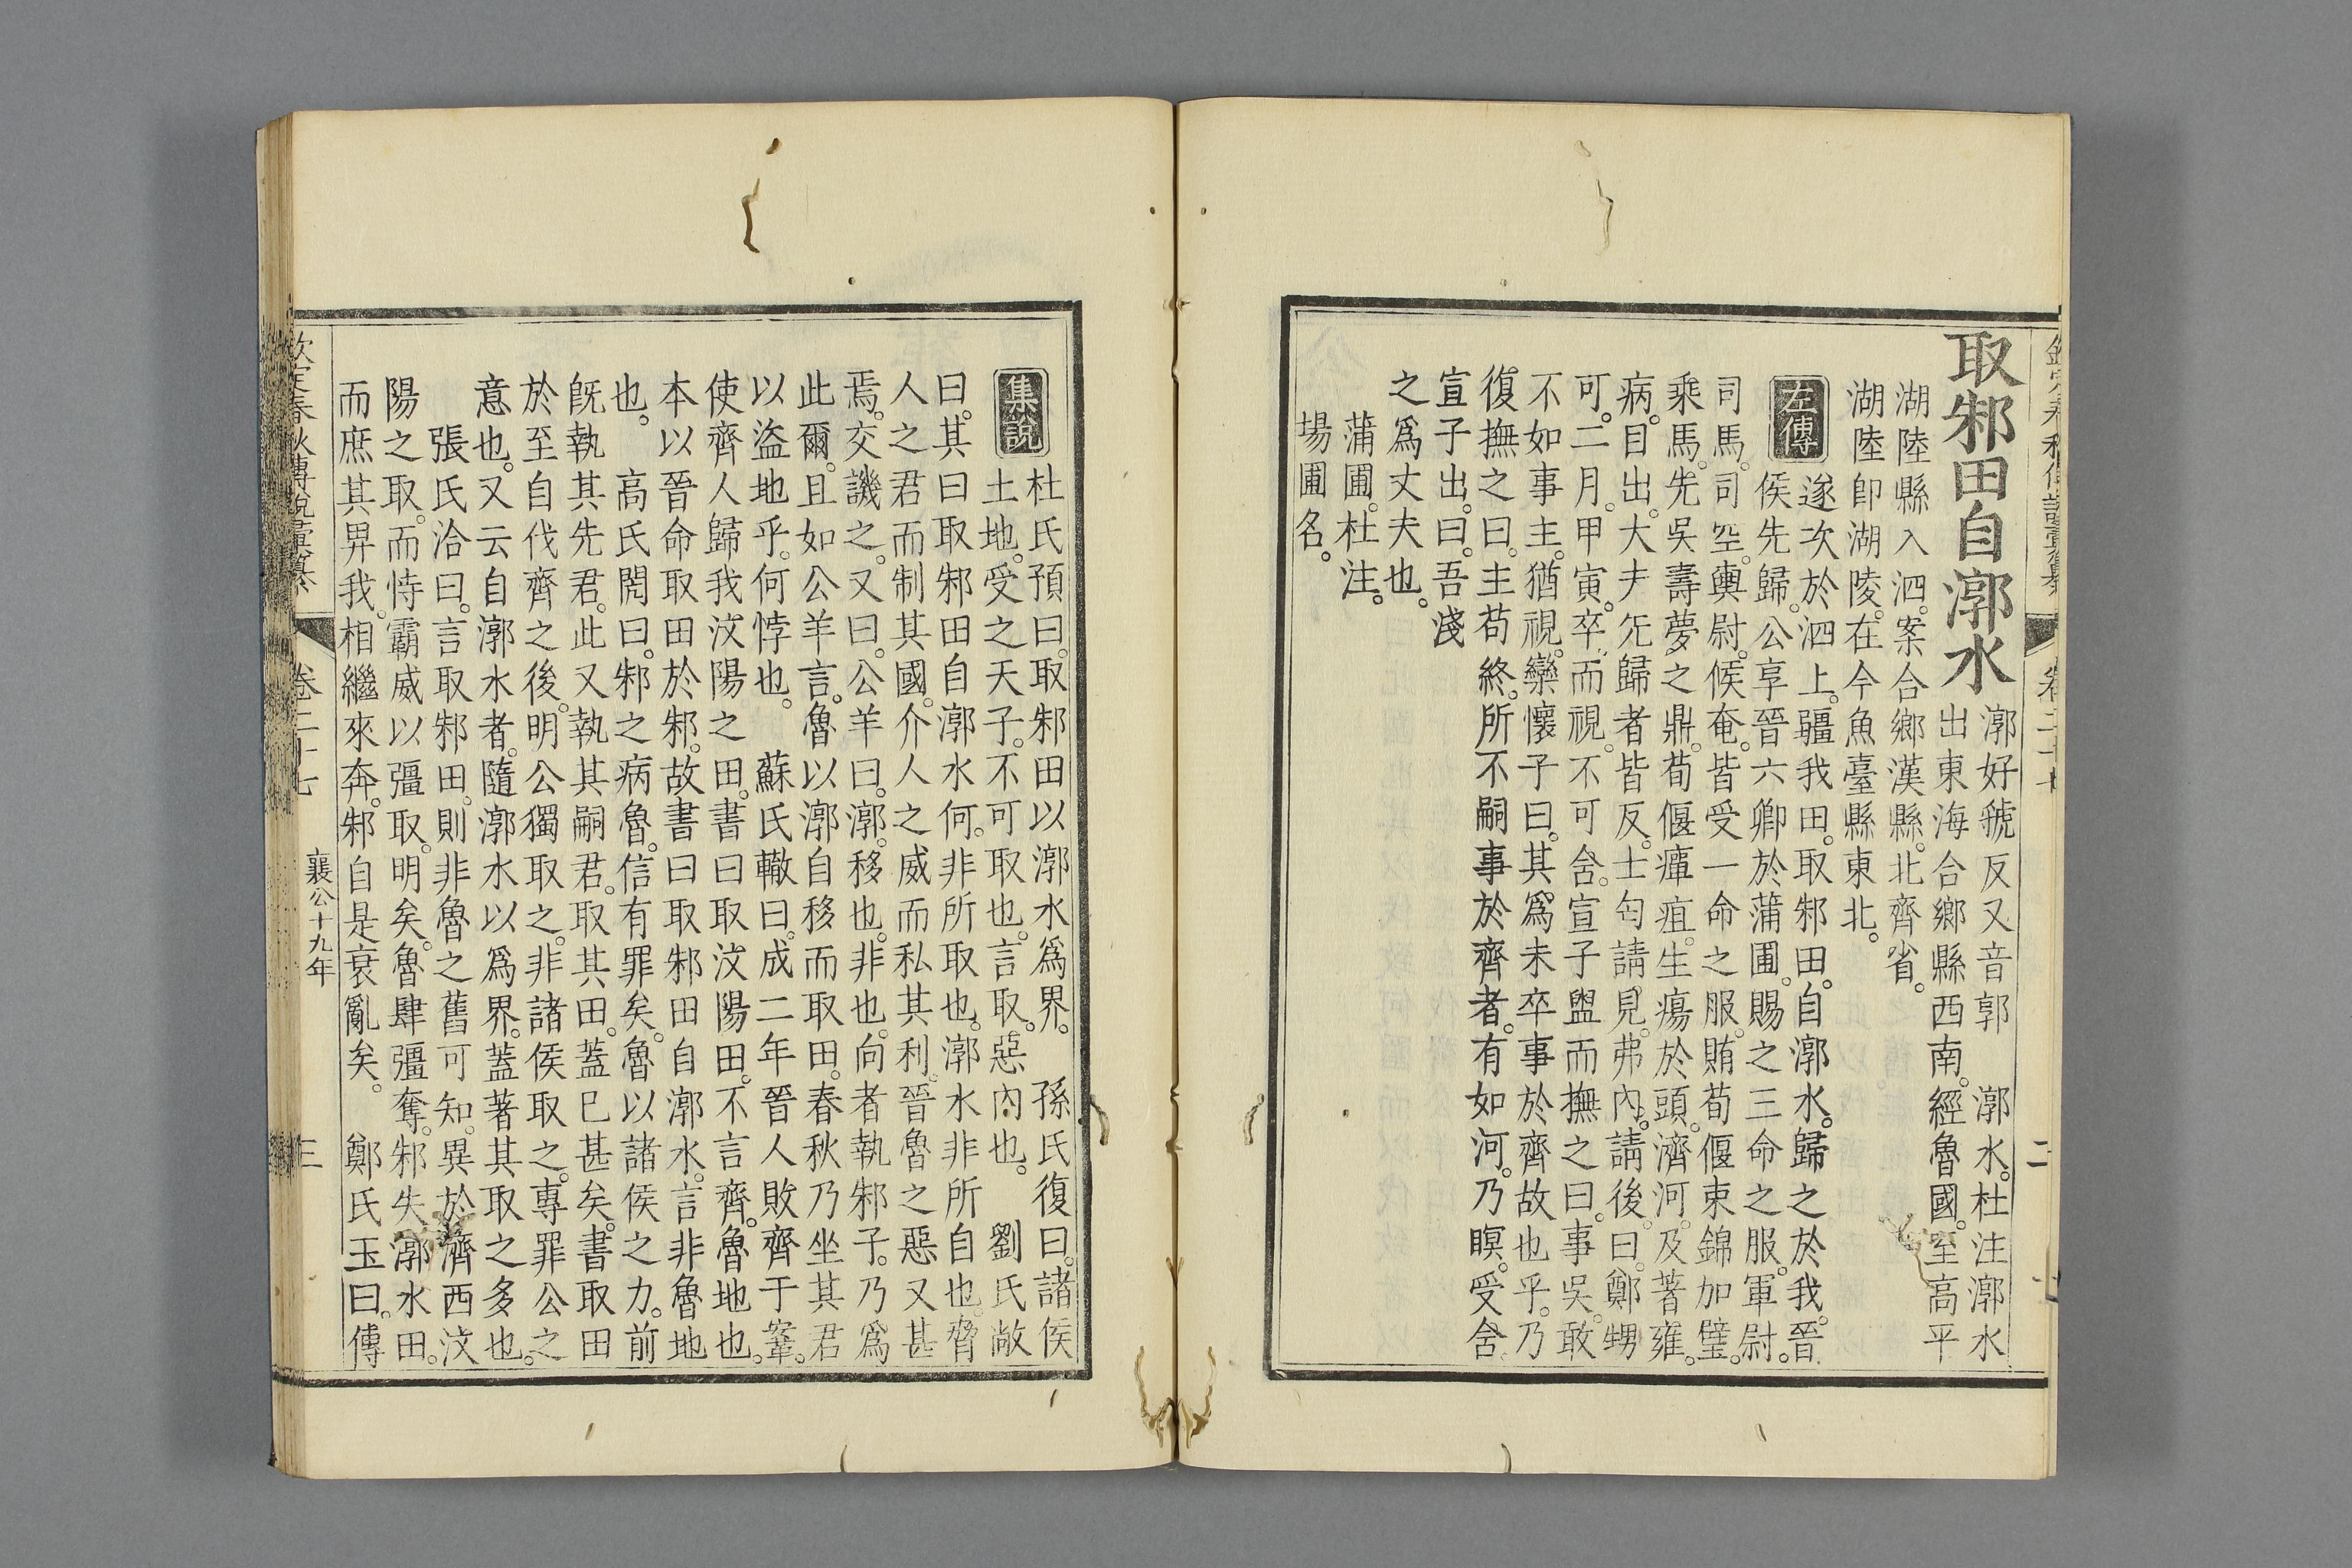 取邾田自漷水
漷好虢反又音郭　漷水杜注漷水
出東海合鄉縣西南經魯國至高平
湖陸縣入泗案合鄉漢縣北齊省
湖陸即湖陵在今魚臺縣東北
左傳
遂次於泗上疆我田取邾田自漷水歸之於我晉
侯先歸公享晉六卿於蒲圃賜之三命之服軍尉
司馬司空輿尉候奄皆受一命之服賄荀偃束錦加璧
乘馬先吳壽夢之鼎荀偃癉疽生瘍於頭濟河及著雍
病目出大夫先歸者皆反士匄請見弗內請後曰鄭甥
可二月甲寅卒而視不可含宣子盥而撫之曰事吳敢
不如事主猶視欒懷子曰其爲未卒事於齊故也乎乃
復撫之曰主苟終所不嗣事於齊者有如河乃暝受含
宣子出曰吾淺
之爲丈夫也
蒲圃杜注
場圃名
卷二十七
二
集說
杜氏預曰取邾田以漷水爲界　孫氏復曰諸侯
土地受之天子不可取也言取惡內也　劉氏敞
曰其曰取邾田自漷水何非所取也漷水非所自也脅
人之君而制其國介人之威而私其利晉魯之惡又甚
焉交譏之又曰公羊曰漷移也非也向者執邾子乃爲
此爾且如公羊言魯以漷自移而取田春秋乃坐其君
以盜地乎何悖也　蘇氏轍曰成二年晉人敗齊于鞌
使齊人歸我汶陽之田書曰取汶陽田不言齊魯地也
本以晉命取田於邾故書曰取邾田自漷水言非魯地
也　高氏閌曰邾之病魯信有罪矣魯以諸侯之力前
旣執其先君此又執其嗣君取其田蓋已甚矣書取田
於至自伐齊之後明公獨取之非諸侯取之專罪公之
意也又云自漷水者隨漷水以爲界蓋著其取之多也
張氏洽曰言取邾田則非魯之舊可知異於濟西汶
陽之取而恃霸威以彊取明矣魯肆彊奪邾失漷水田
而庶其畀我相繼來奔邾自是衰亂矣　鄭氏玉曰傳
欽定春秋傳說彙纂
卷二十七
襄公十九年
三